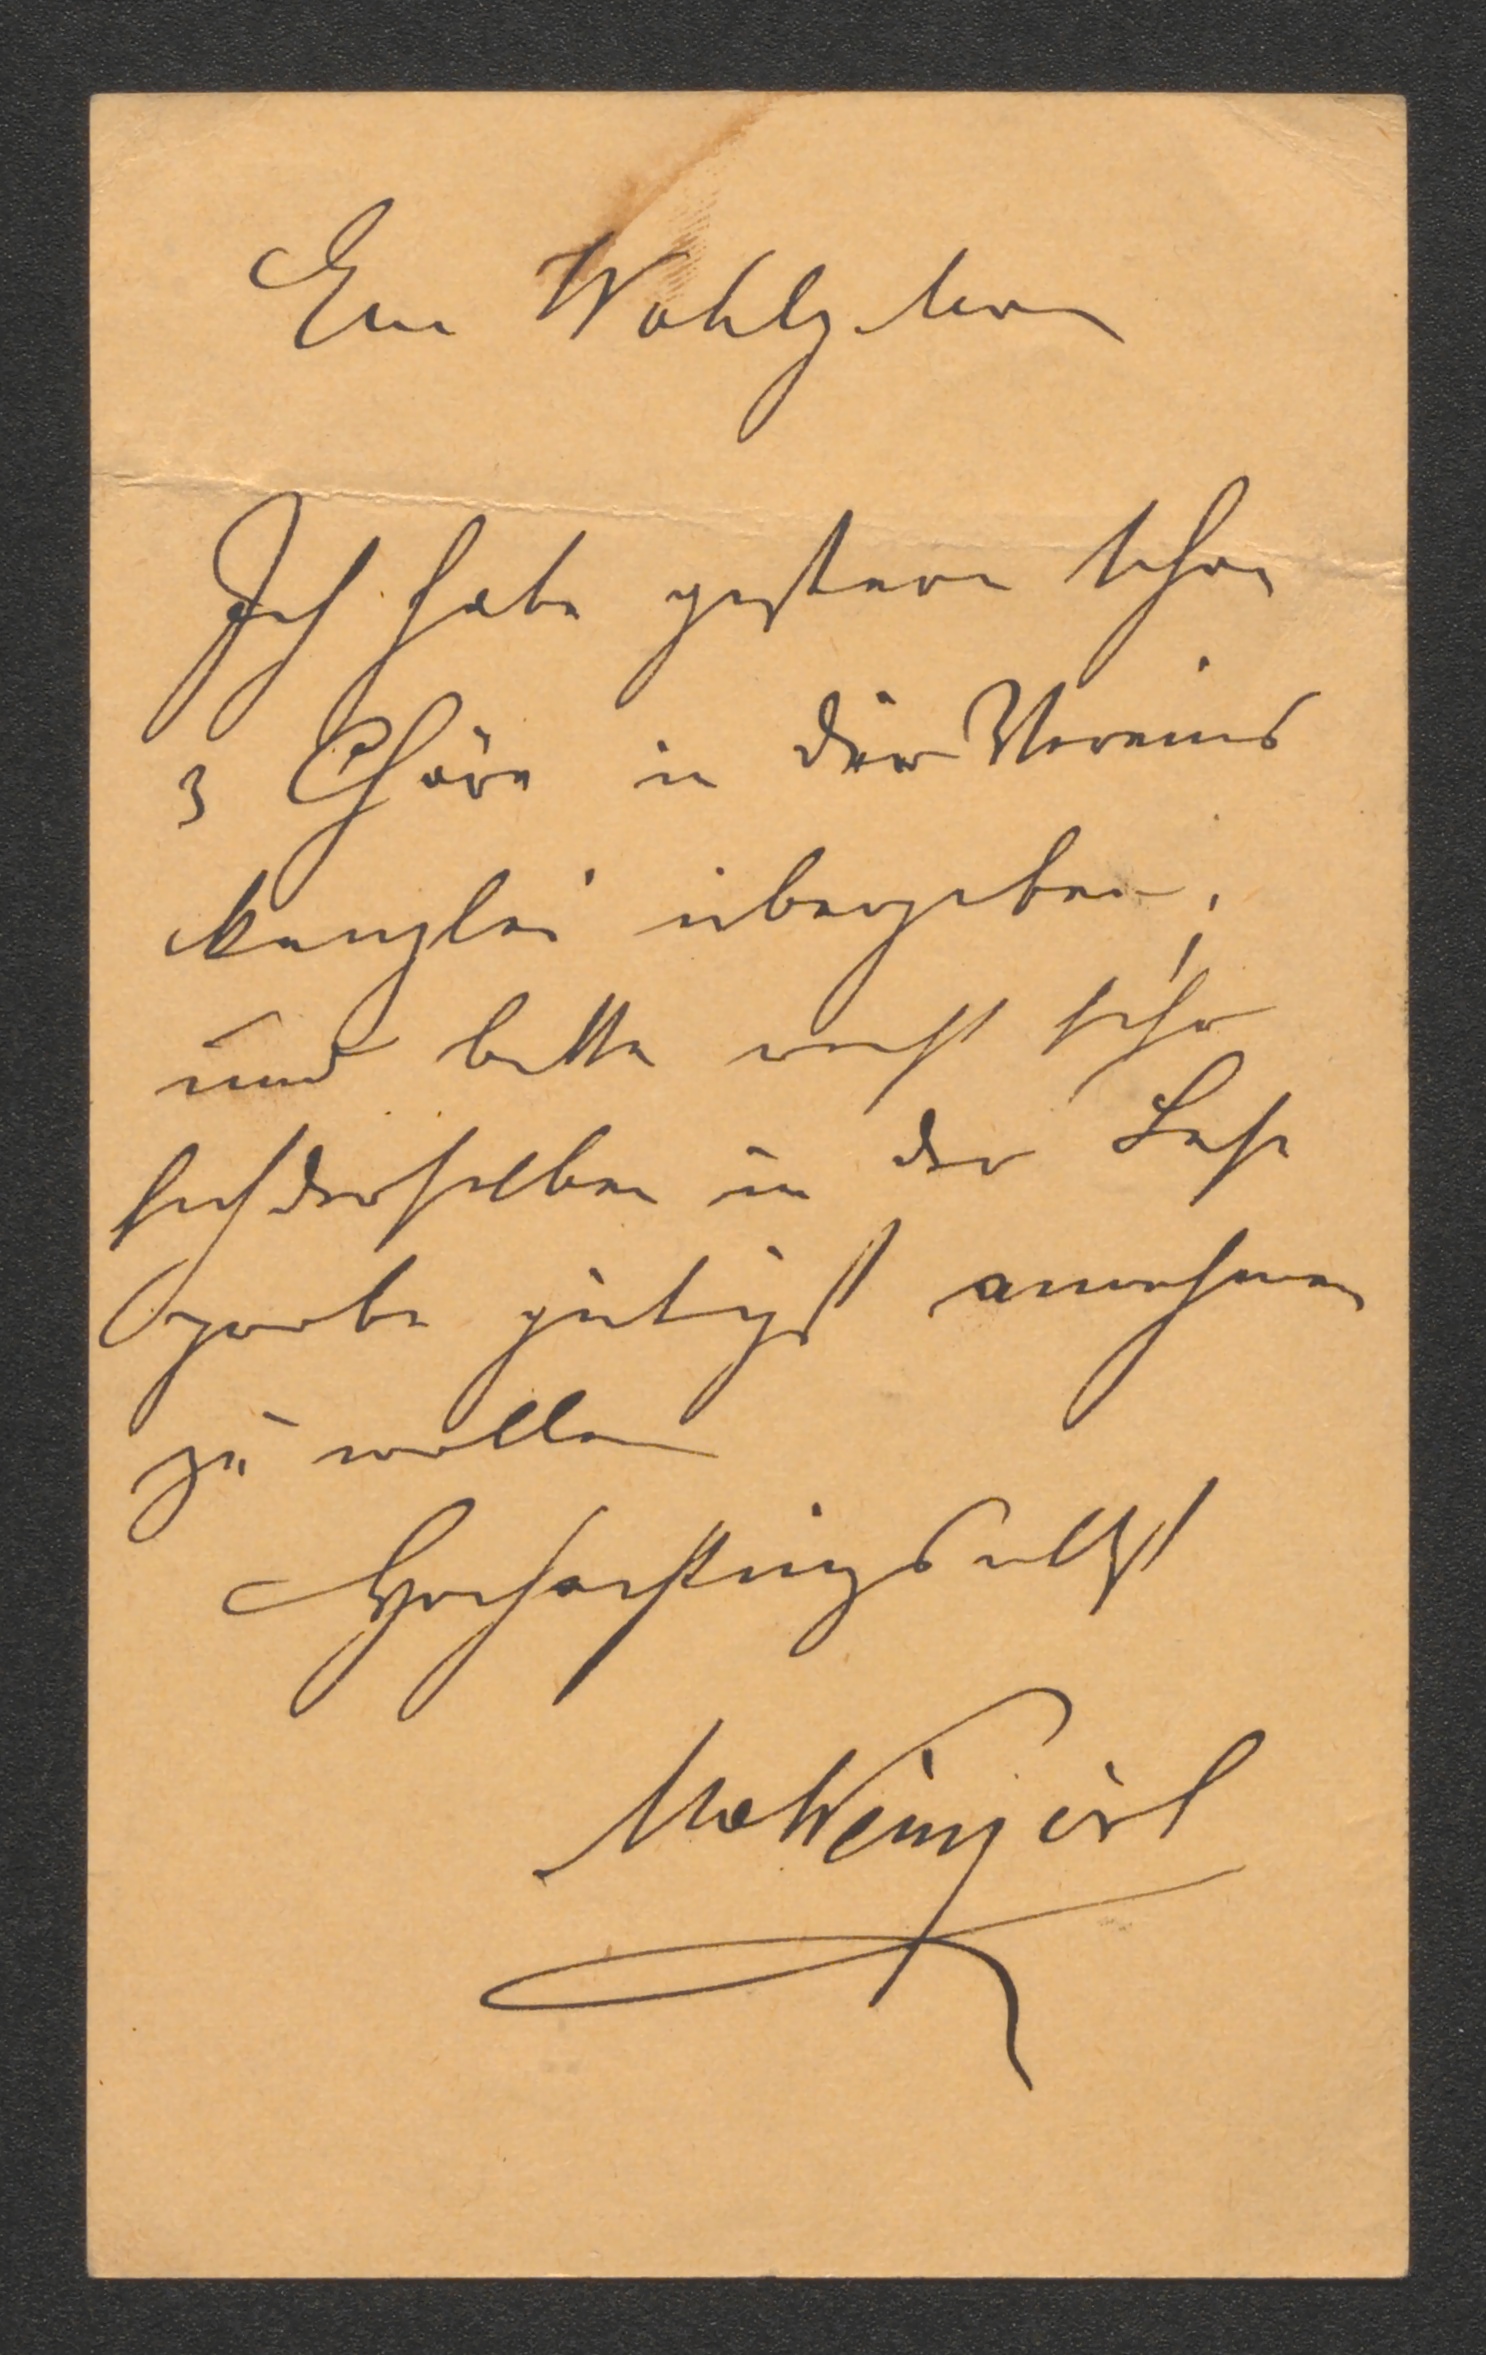 Euer Wohlgeboren
Ich habe gestern schon
3 Chöre in der Vereins
kanzlei übergeben,
und bitte recht sehr
sich derselben in der Lese
probe gütigst annehmen
zu wollen
Hochachtungsvollst
MvWeinzierl